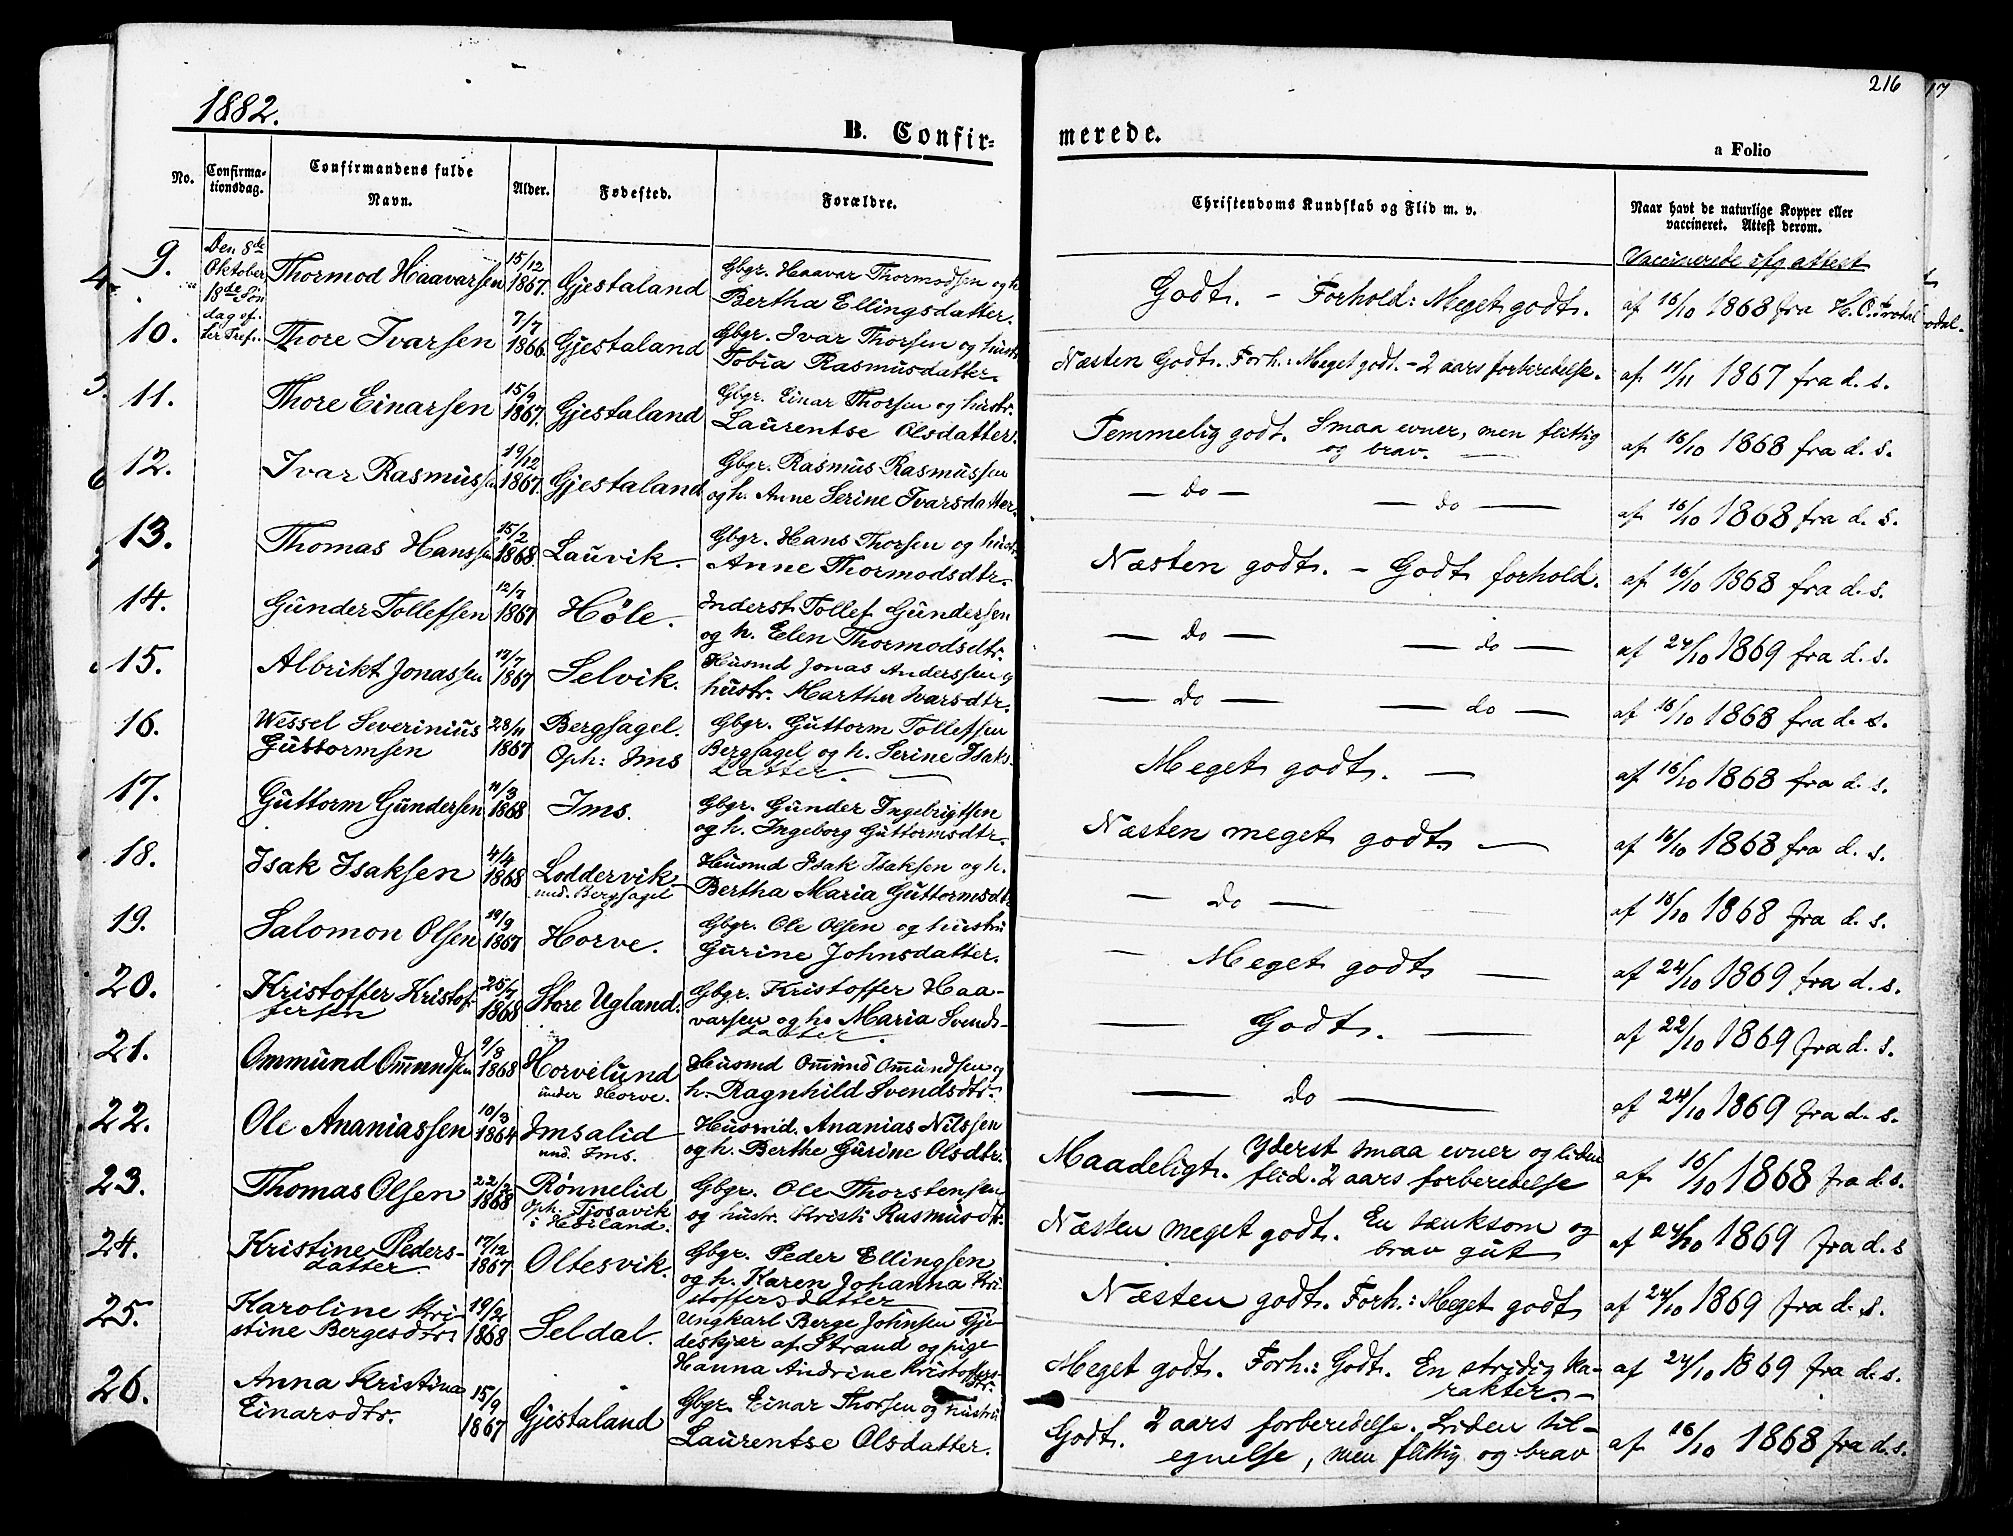 216
17
1882.
B. Confir-
merede.
a Folio
No.
Confirma-
tionsdag.
Confirmandens fulde
Navn.
Alder.
Fødested.
Forældre.
Christendoms Kundskab og Flid m. v.
Naar havt de naturlige Kopper eller
vaccineret. Attest derom.
Vaccinerede ifg attest
9.
Den 8de
Oktober
18de Søn
dag ef-
ter Tref.
Thormod Haavarsen
15/12
1867.
Gjestaland
Gbgr. Haavar Thormodsen og h.
Bertha Ellingsdatter.
Godt. - Forhold: Meget godt.
af 16/10 1868 fra H. C.
10.
Thore Ivarsen
7/7
1866.
Gjestaland
Gbgr. Ivar Thorsen og hustr.
Tobia Rasmusdatter.
Næsten Godt. Forh.: Meget godt. - 2 aars forberedelse.
af 11/11 1867 fra d. s.
11.
Thore Einarsen
15/9
1867.
Gjestaland
Gbgr. Einar Thorsen og hustr.
Laurentse Olsdatter.
Temmelig godt. Smaa evner, men flittig
og brav. —
af 16/10 1868 fra d. s.
12.
Ivar Rasmussen
19/12
1867.
Gjestaland
Gbgr. Rasmus Rasmussen
og h. Anne Serine Ivarsdatter.
— do — — do —
af 16/10 1868 fra d. s.
13.
Thomas Hanssen
15/2
1868.
Lauvik.
Gbgr. Hans Thorsen og hustr.
Anne Thormodsdtr.
Næsten godt. - Godt forhold.
af 16/10 1868 fra d. s.
14.
Gunder Tollefsen
12/7
1867
Høle.
Inderst Tollef Gundersen
og h. Elen Thormodsdtr.
— do — — do —
af 24/10 1869 fra d. s.
15.
Albrikt Jonassen
12/7
1867
Selvik.
Husmd Jonas Anderssen og
hustr. Martha Ivarsdtr.
— do — — do —
af 16/10 1868 fra d. s.
16.
Wessel Severinius
Guttormsen
28/11
1867
Bergsagel.
Oph: Ims
Gbgr. Guttorm Tollefsen
Bergsagel og h. Serine Isaks-
datter. —
Meget godt. —
af 16/10 1868 fra d. s.
17.
Guttorm Gundersen
11/3
1868
Ims.
Gbgr. Gunder Ingebrigtsen
og h. Ingeborg Guttormsdtr.
Næsten meget godt —
af 16/10 1868 fra d. s.
18.
Isak Isaksen
4/4
1868
Loddervik
und. Bergsagel
Husmd Isak Isaksen og h.
Bertha Maria Guttormsdtr
— do —
af 16/10 1868 fra d. s.
19.
Salomon Olsen
19/9
1867
Horve.
Gbgr. Ole Olsen og hustru
Gurine Johnsdatter.
- Meget godt —
af 24/10 1869 fra d. s.
20.
Kristoffer Kristof-
fersen
25/7
1868
Store Ugland.
Gbgr. Kristoffer Haa-
varsen og h. Maria Svends-
datter.
— Godt. —
af 22/10 1869 fra d. s.
21.
Ommund Ommundsen
9/3
1868
Horvelund
under Horve.
Husmd Ommund Ommundsen og
h. Ragnhild Svendsdtr.
— do —
af 24/10 1869 fra d. s.
22.
Ole Ananiassen
10/3
1864
Imsalid
und. Ims.
Husmd. Ananias Nilssen
og h. Berthe Gurine Olsdtr.
Maadeligt. Yderst smaa evner og liden
flid. 2 aars forberedelse
af 16/10 1868 fra d. s.
23.
Thomas Olsen
1868
Rønnelid
Oph: Tjosavik
i Høiland.
Gbgr. Ole Thorstensen
og hustr. Kristi Rasmusdtr.
Næsten meget godt. En tænksom og
brav gut
af 24/10 1869 fra d. s
24.
Kristine Peders-
datter.
17/12
1867.
Oltesvik.
Gbgr. Peder Ellingsen
og h. Karen Johanna Kri-
stoffersdatter
Næsten godt. Forh.: Meget godt
af 24/10 1869 fra d. s.
25.
Karoline Kri-
stine Bergesdtr
19/2
1868
Seldal.
Ungkarl Berge Johnsen Gje-
deskjær af Strand og pige
Hanna Andrine Kristoffers-
dtr.
Meget godt. Forh.: Godt. En stridig ka-
rakter. -
af 24/10 1869 fra d. s.
26.
Anna Kristina
Einarsdtr.
15/9
1867
Gjestaland
Gbgr. Einar Thorsen og hustru
Laurentse Olsdatter.
Godt. 2 aars forberedelse. Liden til-
egnelse, men flittig og brav
af 16/10 1868 fra d. s.